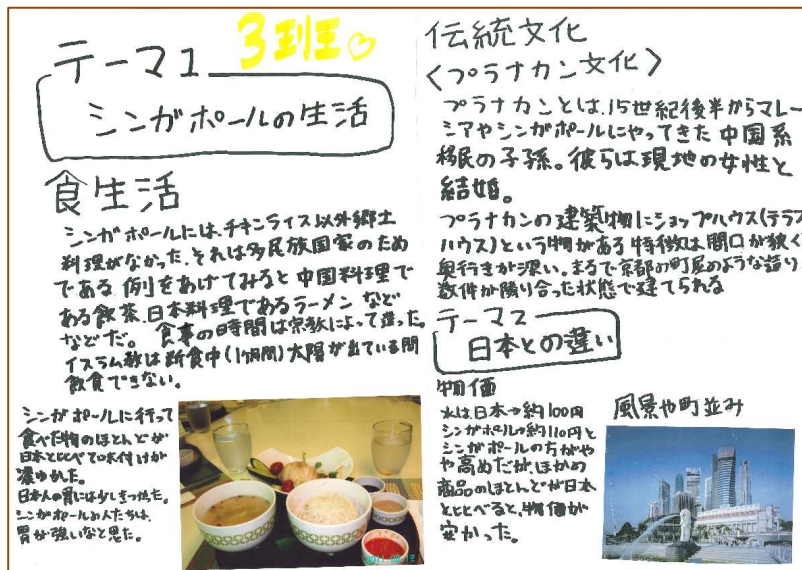 3班♡
テーマ1
シンガポールの生活
食生活
シンガポールには、チキンライス以外郷土
料理がなかった。それは多民族国家のため
である。例をあげてみると中国料理で
ある飲茶、日本料理であるラーメンなど
などだ。食事の時間は宗教によって違った。
イスラム教は断食中(1ヶ月間)太陽が出ている間
飲食できない。
シンガポールに行って
食べた物のほとんどが
日本と比べて味付けが
濃ゆかった。
日本人の胃には少しきつかった。
シンガポールの人たちは、
胃が強いなと思た。
伝統文化
〈プラナカン文化〉
プラナカンとは、15世紀後半からマレー
シアやシンガポールにやってきた中国系
移民の子孫。彼らは現地の女性と
結婚。
プラナカンの建築物にショップハウス(テラス
ハウス)という物がある特徴は間口が狭く
奥行きが深い。まるで京都の町屋のような造り
数件が隣り合った状態で建てられる
テーマ2
日本との違い
物価
水は日本→約100円
シンガポール→約110円と
シンガポールの方がや
や高めだが、ほかの
商品のほとんどが日本
とくらべると、物価が
安かった。
風景や町並み